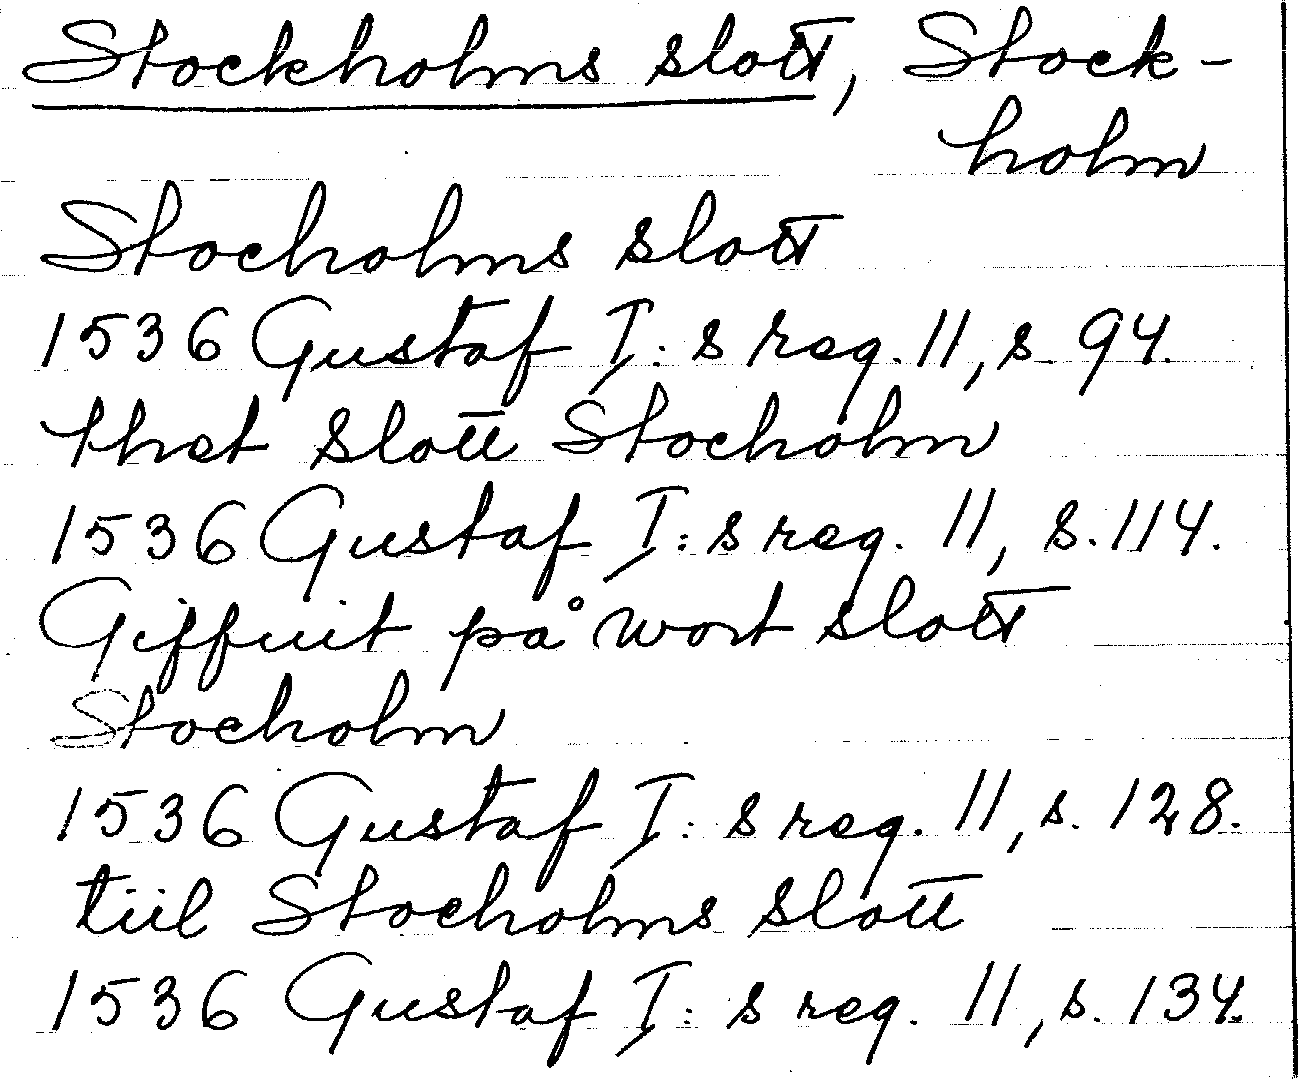 Stockholms slott, Stock-
holm
Stocholms slott
1536 Gustaf I:s reg. 11, s. 94.
thet slott Stocholm
1536 Gustaf I:s reg. 11, s. 114.
Giffuit på wort slott
Stocholm
1536 Gustaf I:s reg. 11, s. 128.
tiil Stocholms slott
1536 Gustaf I:s reg. 11, s. 134.